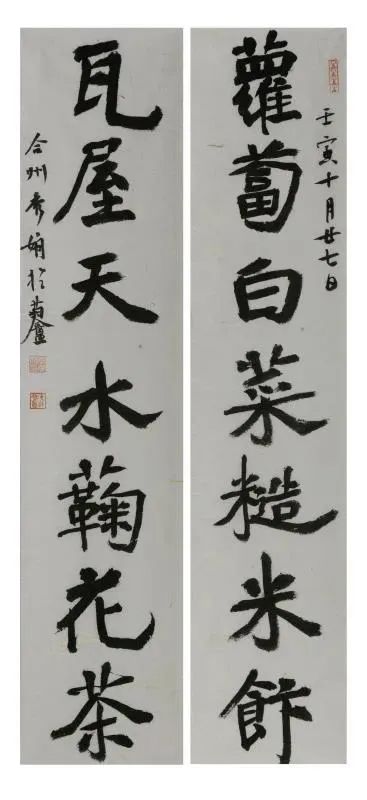 壬寅十月廿七日
蘿蔔白菜糙米飰
瓦屋天水蘜花茶
合州秀娟於菊盦